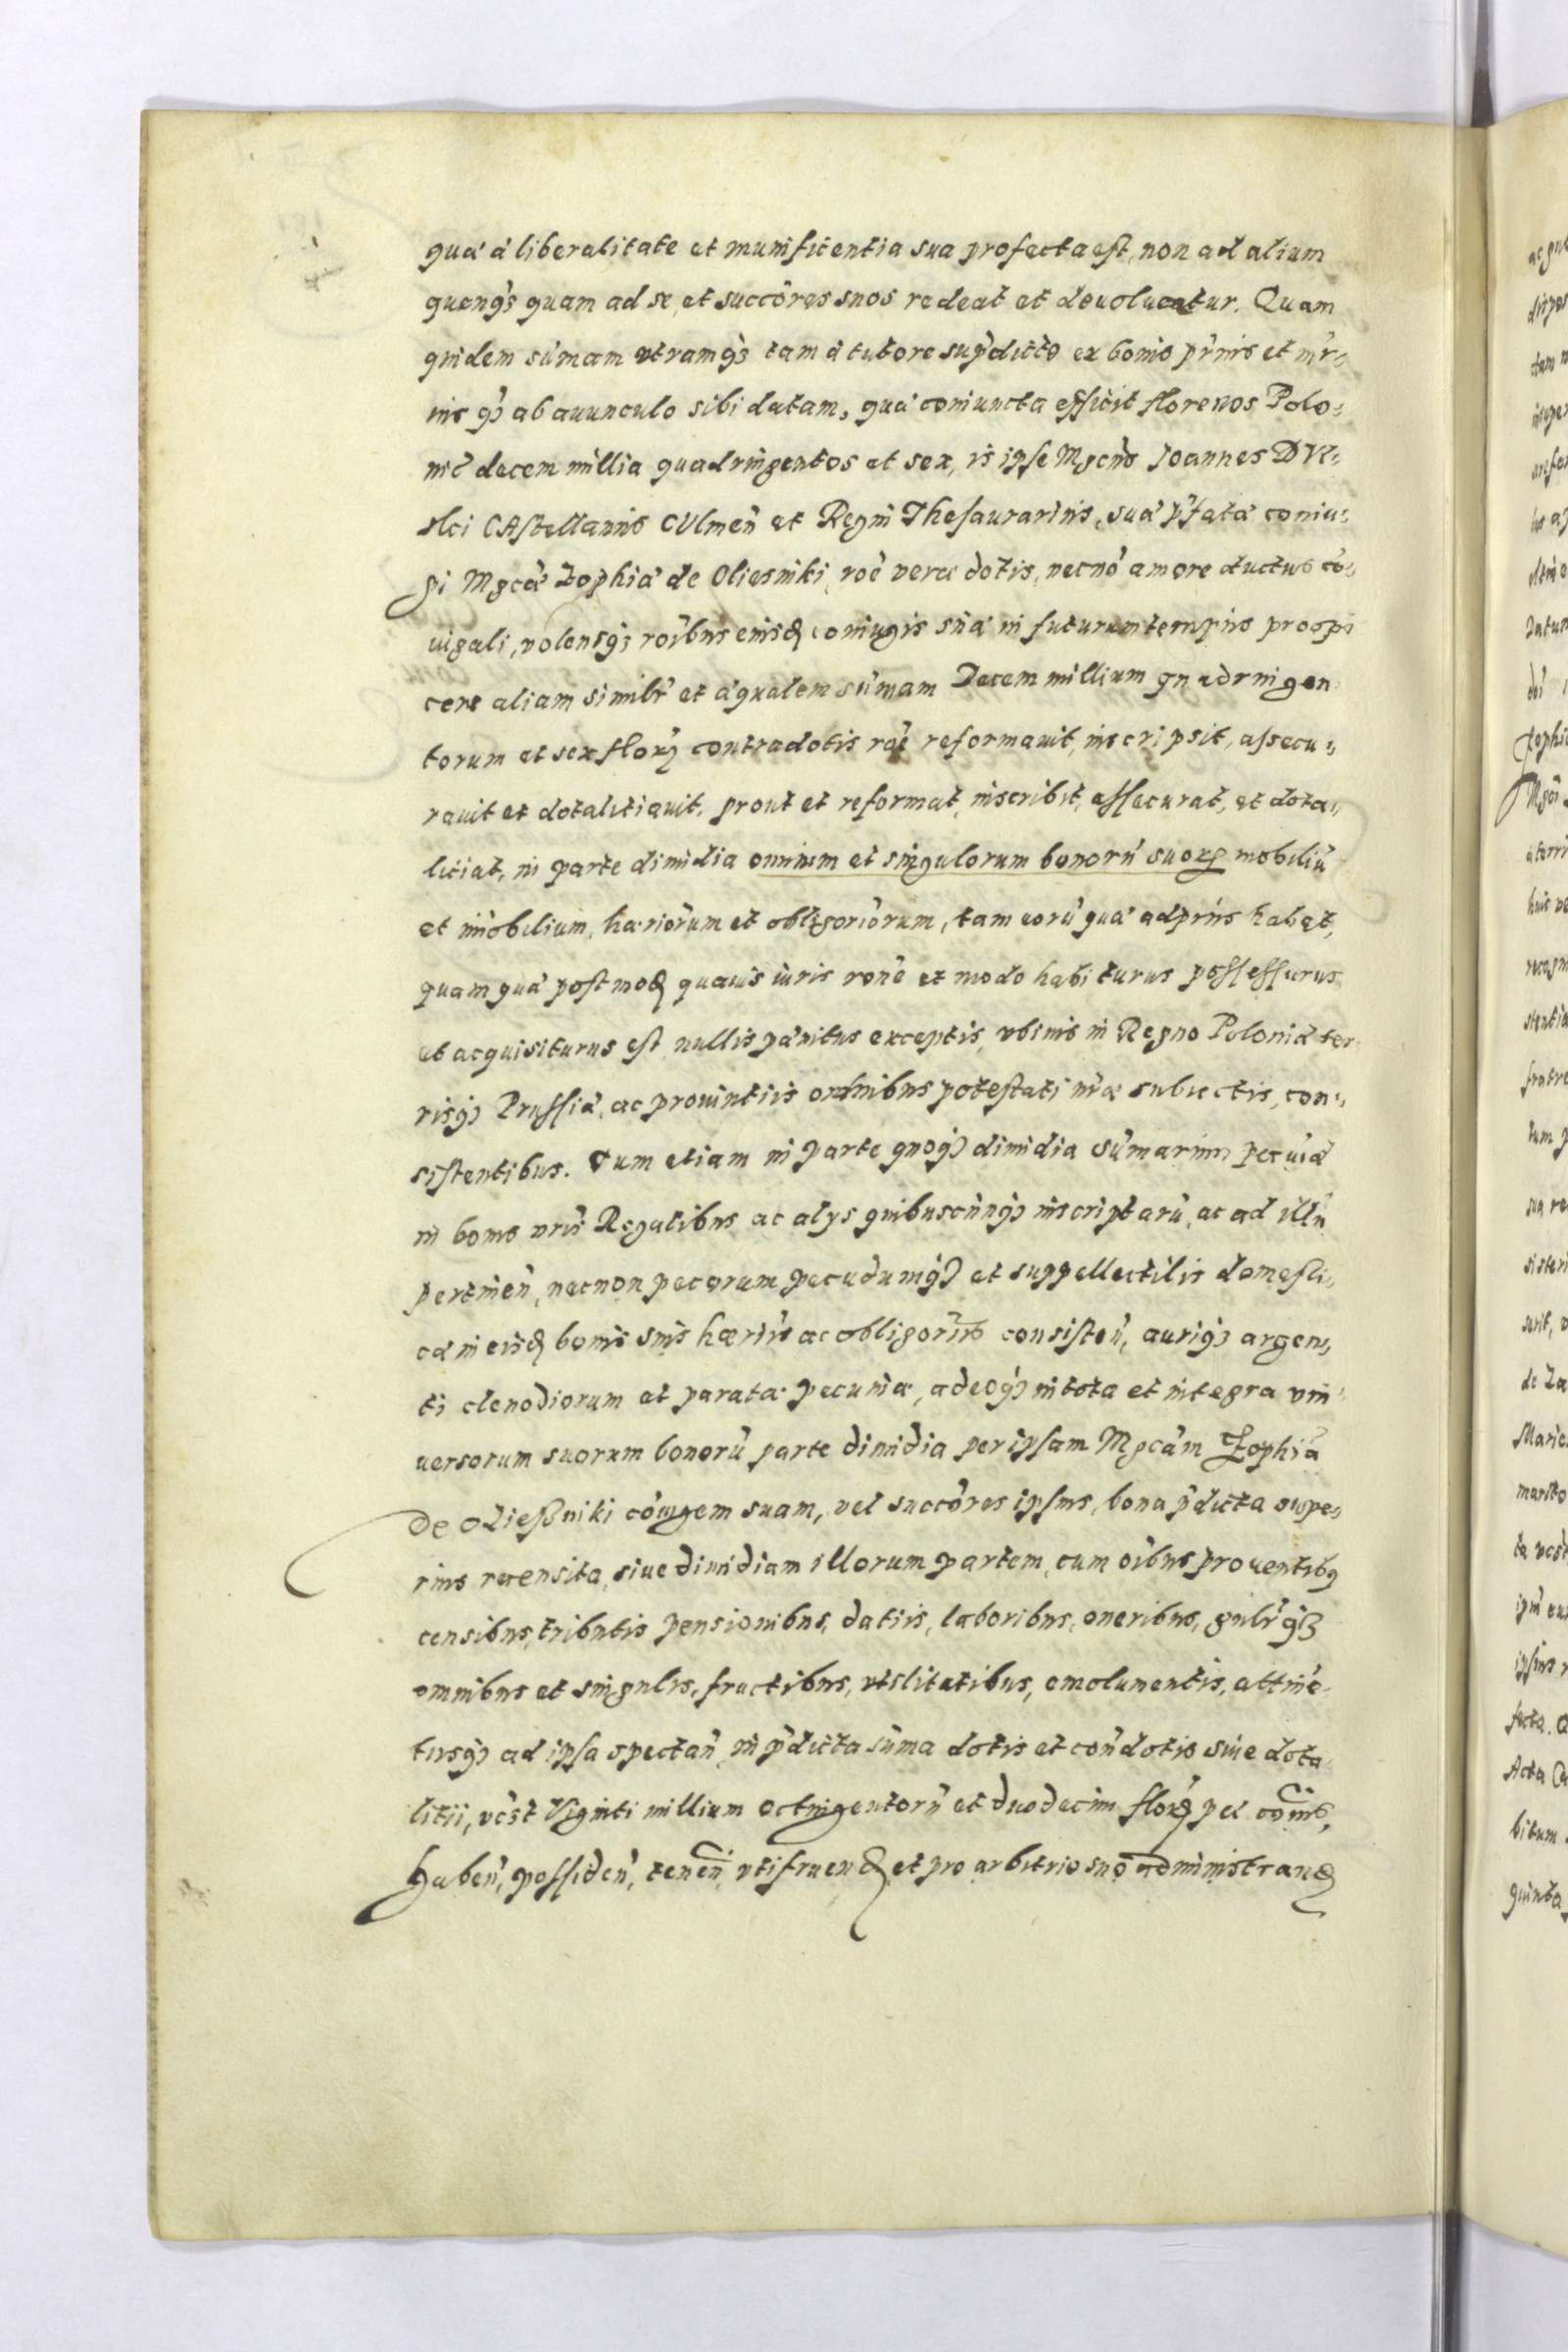 quæ à liberalitate et munificentia sua profecta est, non ad alium
quenq3 quam ad se, et succõres suos redeat et deuoluatur. Quam
quidem sum̃am vtramq3 tam à tutore sup̃dicto ex bonis pr̃nis et mr̃-
nis q3 ab auunculo sibi datam, quæ coniuncta efficit florenos Polo-
nic̃ decem millia quadringentos et sex, is ipse Mgcũs Ioannes DVl-
sky CAstellanus CVlmeñ et Regni Thesaurarius, suæ pr̃fatæ coniu-
gi Mgcæ Zophiæ de Oliesniki, roẽ veræ dotis, necnõ amore ductus cõ-
iugali, volensq3 rõibus eiusd coniugis suæ in futurum tempus prospi
cere aliam similẽ et æqualem sum̃am Decem millium quadringen
torum et sex flor3 contradotis roẽ reformauit, inscripsit, assecu-
rauit et dotalitiauit. prout et reformat, inscribit, assecurat, et dota-
litiat, in parte dimidia omnium et singulorum bonorũ suor3 mobiliũ
et im̃obilium, hæriõrum et obligoriõrum, tam eorũ quæ ad pr̃ns habet,
quam quæ postmod quauis iuris ronẽ et modo habiturus possessurus
et acquisiturus est nullis pænitus exceptis, vbiuis in Regno Poloniæ ter
risq3 Prussiæ, ac prouintiis omnibus potestati nr̃æ subiectis, con-
sistentibus. Tum etiam in parte quoq3 dimidia sum̃arum pecuiæ
in bonis nr̃is Regalibus ac alys quibuscunq3 inscriptarũ, ac ad illũ
pertineñ, necnon pecorum pecudumq3 et suppellectilis domesti-
cæ in eisd bonis suis hæriis ac obligoriis consisteñ, auriq3 argen-
ti clenodiorum et paratæ pecuniæ, adeoq3 in tota et integra vni-
uersorum suorum bonorũ parte dimidia per ipsam Mgcam Zophiã
De OLießniki cõiugem suam, vel succõres ipsius, bona pr̃dicta supe-
rius recensita, siue dimidiam illorum partem, cum oĩbus prouentib9
censibus, tributis pensionibus, datiis, laboribus, oneribus, gnĩlr q3
omnibus et singulis, fructibus, vtilitatibus, emolumentis, attinẽ-
tiisq3 ad ipsa spectañ, in pr̃dicta sum̃a dotis et cond̃otis siue dota-
litii, vcst Viginti millium octingentorũ et duodecim flor3 pec cõiuis,
habeñ, possideñ, teneñ, vtifruend et pro arbitrio suo administrand